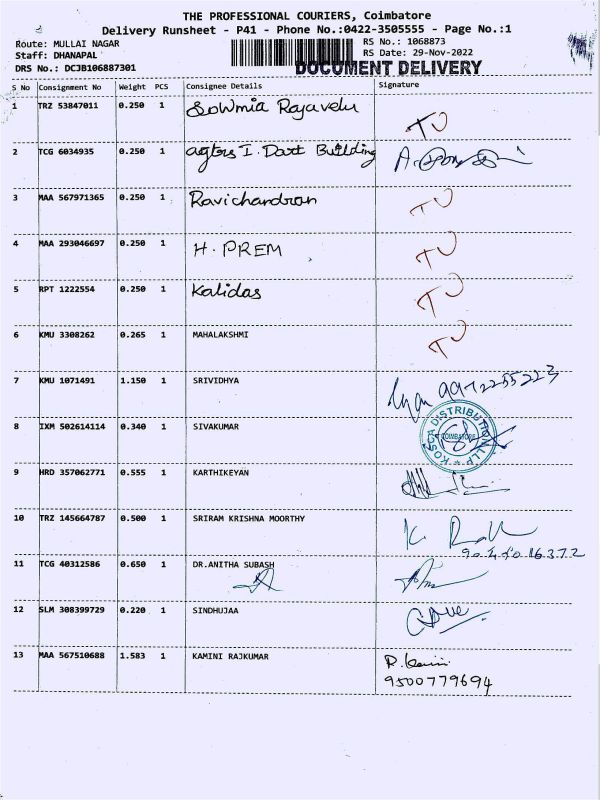 THE PROFESSIONAL COURIERS, Coimbatore
Delivery Runsheet - P41 - Phone No.:0422-3505555 - Page No.:1
Route: MULLAI NAGAR
RS No.: 1068873
Staff: DHANAPAL
RS Date: 29-Nov-2022
DRS No.: DCJB106887301
DOCUMENT DELIVERY
S No Consignment No Weight PCS Consignee Details Signature
1 TRZ 53847011 0.250 1 Sowmia Rajavelu
TU
2 TCG 6034935 0.250 1 I. Dart Building
3 MAA 567971365 0.250 1 Ravichandran TU
4 MAA 293046697 0.250 1 H. PREM TU
5 RPT 1222554 0.250 1 Kalidas TU
6 KMU 3308262 0.265 1 MAHALAKSHMI TU
7 KMU 1071491 1.150 1 SRIVIDHYA
8 IXM 502614114 0.340 1 SIVAKUMAR
KOSCA DISTRIBUTION LLP
COIMBATORE
9 HRD 357062771 0.555 1 KARTHIKEYAN
10 TRZ 145664787 0.500 1 SRIRAM KRISHNA MOORTHY
11 TCG 40312586 0.650 1 DR.ANITHA SUBASH
12 SLM 308399729 0.220 1 SINDHUJAA
13 MAA 567510688 1.583 1 KAMINI RAJKUMAR
9500779694